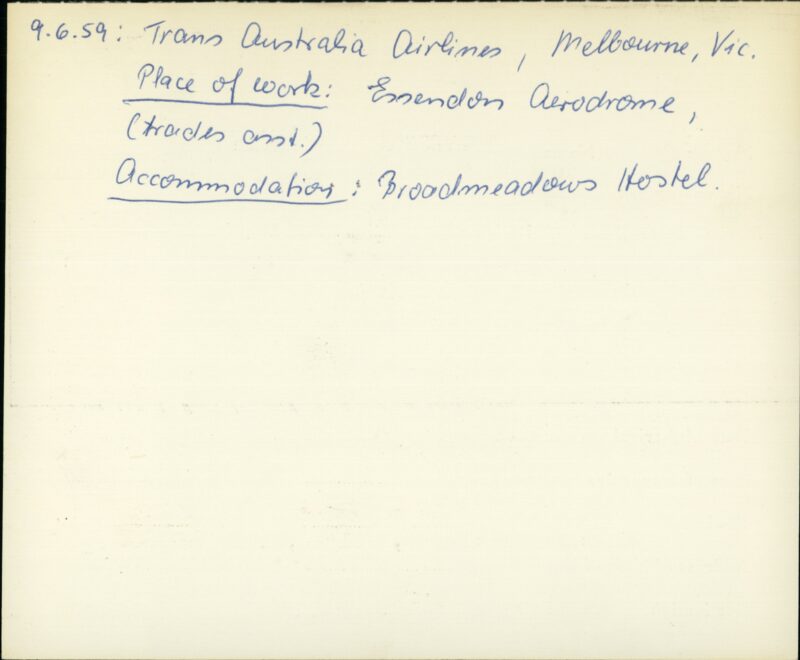 9.6.59: Trans Australia Airlines, Melbourne, Vic.
Place of work: Essendon Aerodrome,
(trades asst.)
Accommodation: Broadmeadows Hostel.